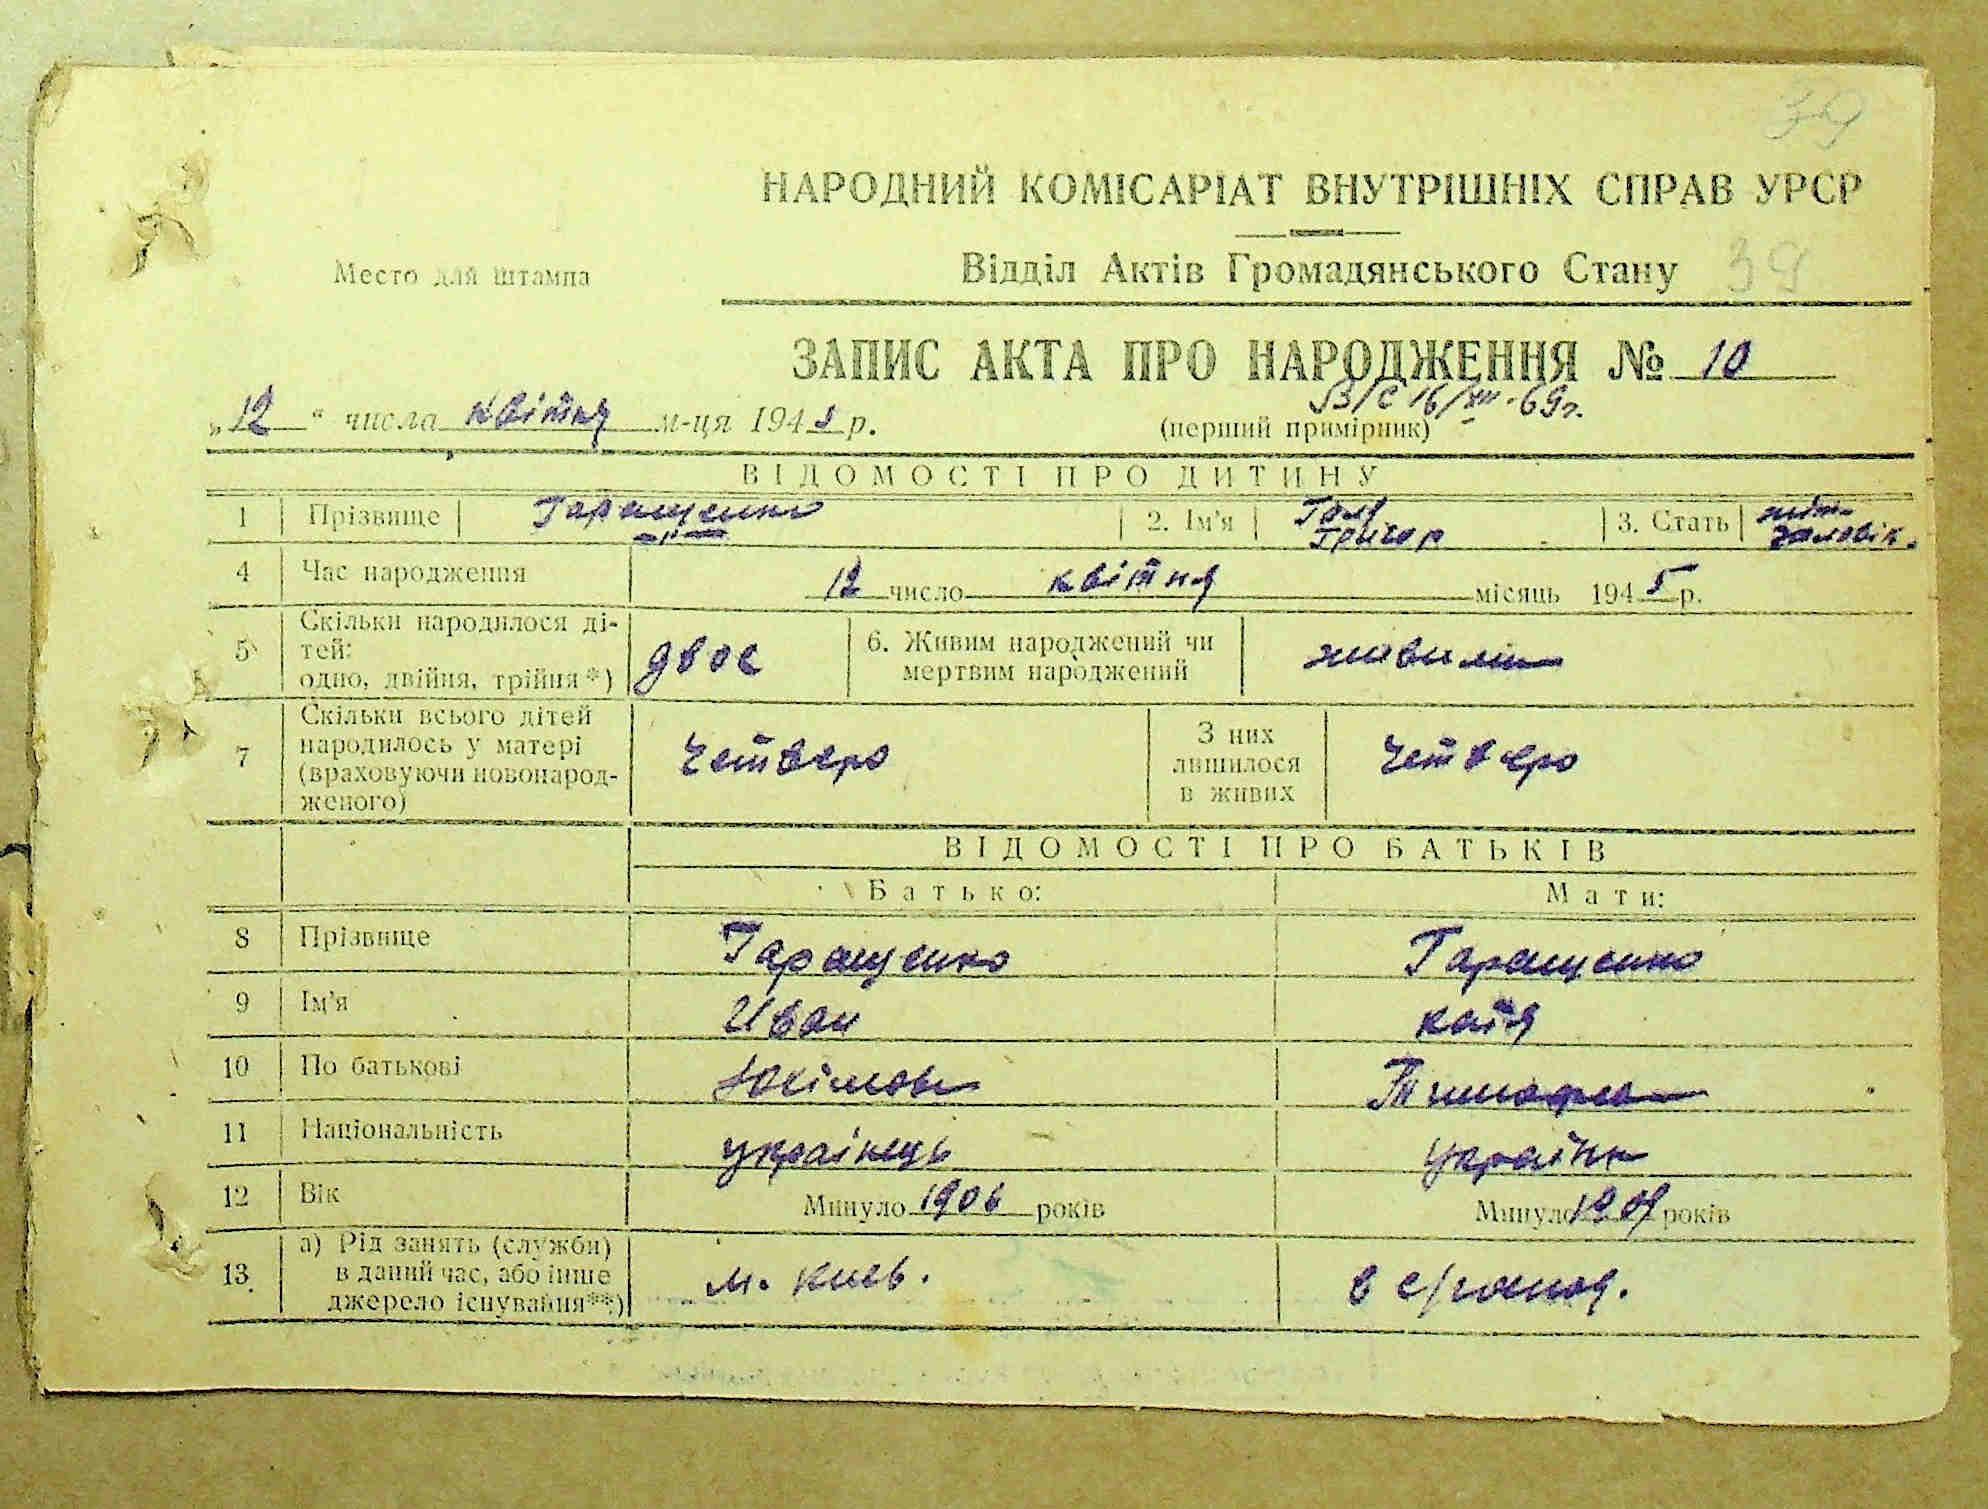 39
НАРОДНИЙ КОМІСАРІАТ ВНУТРІШНІХ СПРАВ УРСР
Место для штампа
Відділ Актів Громадянського Стану 39
ЗАПИС АКТА ПРО НАРОДЖЕННЯ № 10
В/С 16/XII-69г.
„12“ числа квітня м-ця 1945 р. (перший примірник)
ВІДОМОСТІ ПРО ДИТИНУ
1 Прізвище Гаращенко 2. Ім'я Галя Григор 3. Стать жін- чоловік.
4 Час народження 12 число квітня місяць 1945 р.
5 Скільки народилося ді-
тей:
одно, двійня, трійня*) двое 6. Живим народжений чи
мертвим народжений живими
7 Скільки всього дітей
народилось у матері
(враховуючи новонарод-
женого) Четверо З них
лишилося
в живих Четверо
ВІДОМОСТІ ПРО БАТЬКІВ
Батько: Мати:
8 Прізвище Гаращенко Гаращенко
9 Ім'я Иван катя
10 По батькові Юхімов Тимофе
11 Національність українець українк
12 Вік Минуло 1906 років Минуло 1909 років
13 а) Рід занять (служби)
в даний час, або інше
джерело існування**) м. Киев. в